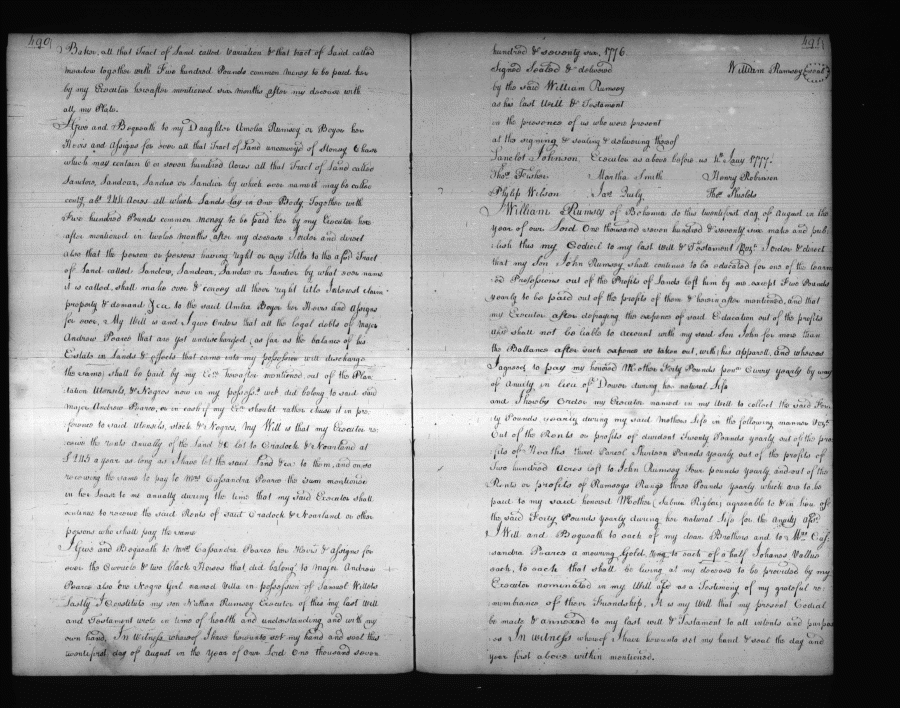 490
Baker, all that Tract of Land called Variation & that tract of Land called
meadow together with Five hundred Pounds common money to be paid her
by my Executor hereafter mentioned six months after my decease with
all my Plate.
I Give and Bequeath to my Daughter Amelia Rumsey or Boyer her
Heirs and Assigns for ever all that Tract of Land
which may contain 6 or seven hundred Acres all that Tract of Land called
Sandow, Sandoar, Sandus or Sandier by which ever name it may be called
contg abt 244 Acres all which Lands lay in one Body Together with
Five hundred Pounds common money to be paid her by my Executor here
after mentioned in twelve months after my decease I order and direct
also that the person or persons having right or any Title to the afsd Tract
of Land called Sandow, Sandoar, Sandus or Sandier by what ever name
it is called, shall make over & convey all their right title Interest claim
property & demand &ca to the said Amelia Boyer her Heirs and Assigns
for ever, My Will is and I give Orders that all the legal debts of Major
Andrew Pearce that are yet undischarged, as far as the balance of his
Estate in Lands & effects that came into my possession will discharge
the same, shall be paid by my Exr hereafter mentioned out of the Plan
tation Utensils & Negroes now in my possesn wch did belong to said
Major Andrew Pearce, or in case if my Exr should rather chuse it in pre
ference to said Utensils, stock & Negroes, My Will is that my Executor re
ceive the rents annually of the Land &c let to Cradock & Nourland at
£245 a year as long as I have let the said Land &ca to them, and on
receiving the same to pay to Mrs Cassandra Pearce the sum mentioned
in her Lease to me annually during the time that my said Executor shall
continue to receive the said Rents of said Cradock & Nourland or other
persons who shall pay the same
I Give and Bequeath to Mrs Cassandra Pearce her Heirs & assigns for
ever the & two black Horses that did belong to Major Andrew
Pearce also one Negro Girl named Villa in possession of Samuel Willits
Lastly I Constitute my son Nathan Rumsey Executor of this my last Will
and Testament wrote in time of health and understanding and with my
own hand. In Witness whereof I have hereunto set my hand and seal this
twentifirst day of August in the Year of our Lord One thousand seven
491
hundred & seventy six, 1776.
Signed Sealed & delivered William Rumsey (seal)
by the said William Rumsey
as his last Will & Testament
in the presence of us who were present
at the signing & sealing & delivering thereof
Lancelot Johnson, Executor as above before us 4th Jany 1777.
Thos Fisher Martha Smith Henry Robinson
Philip Wilson Jas Thos Shields
I William Rumsey of Bohemia do this twentifirst day of August in the
year of our Lord One thousand seven hundred & seventy six make and pub
lish this my Codicil to my last Will & Testament I order & direct
that my Son John Rumsey shall continue to be educated for one of the learn
ed Professions out of the Profits of Lands left him by me except Five Pounds
yearly to be paid out of the profits of them & herein after mentioned, and that
my Executor after defraying the expences of said Education out of the profits
afsd shall not be liable to account with my said Son John for more than
the Ballance after such expences so taken out, with his apparell, and whereas
I agreed to pay my honored Mother Forty Pounds Every yearly by way
of Anuity in lieu of Dower during her natural life
and I hereby Order my Executor named in my Will to collect the said For
ty Pounds yearly during my said mothers Life in the following manner vizt
Out of the Rents or profits of dividend Twenty Pounds yearly out of the pro
fits of Parcel Thirteen Pounds yearly out of the profits of
Two hundred Acres left to John Rumsey Four pounds yearly and out of the
Rents or profits of Rumseys Range three Pounds yearly which are to be
paid to my said honored Mother (Sabina Rigbie) agreeable to & in lieu of
the said Forty Pounds yearly during her natural Life for the Anuity afsd.
I Will and Bequeath to each of my dear Brothers and to Mrs Cas
sandra Pearce a mourning Gold Ring to each of a half Johanes Vallue
each, to each that shall be living at my decease to be provided by my
Executor nominated in my Will afsd as a Testimony of my grateful re
membrance of their Friendship. It is my Will that my present Codicil
be made & annexed to my last Will & Testament to all intents and purpos
es In witness whereof I have hereunto set my hand & seal the day and
year first above within mentioned.